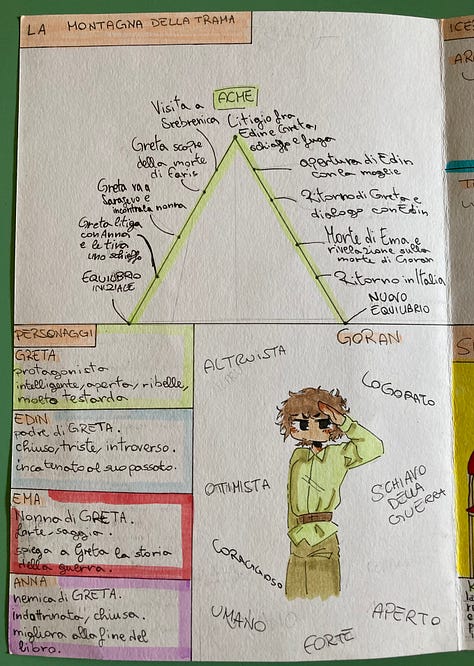 LA MONTAGNA DELLA TRAMA
ACME
Visita a
Srebrenica
Litigio fra
Edin e Greta,
schiaffo e fuga
Greta scopre
della morte
di Faris
apertura di Edin
con la moglie
Greta va a
Sarajevo e
incontra la nonna
Ritorno di Greta e
dialogo con Edin
Greta litiga
con Anna
e le tira
uno schiaffo
Morte di Ema e
rivelazione sulla
morte di Goran
EQUILIBRIO
INIZIALE
Ritorno in Italia
NUOVO
EQUILIBRIO
PERSONAGGI
GRETA
protagonista
intelligente, aperta, ribelle,
molto testarda
EDIN
padre di GRETA.
chiuso, triste, introverso.
incatenato al suo passato.
EMA
Nonna di GRETA.
forte, saggia.
spiega a Greta la storia
della guerra.
ANNA
nemica di GRETA.
indottrinata, chiusa.
migliora alla fine del
libro.
GORAN
ALTRUISTA
LOGORATO
OTTIMISTA
SCHIAVO
DELLA
GUERRA
CORAGGIOSO
UMANO
FORTE
APERTO